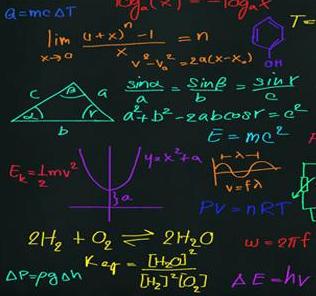 Q = mcΔT
logₐ(x) = -logₐx
lim x→0 (1+x)ⁿ - 1 / x = n
T =
v² - v₀² = 2a(x-x₀)
OH
c a b α β γ
sinα/a = sinβ/b = sinγ/c
a² + b² - 2abcosγ = c²
E = mc²
Eₖ = 1/2 mv²
y = x² + a
a
⊢λ⊣
v = fλ
PV = nRT
2H₂ + O₂ ⇌ 2H₂O
ω = 2πf
Keq = [H₂O]² / [H₂]²[O₂]
ΔP = ρgΔh
ΔE = hν